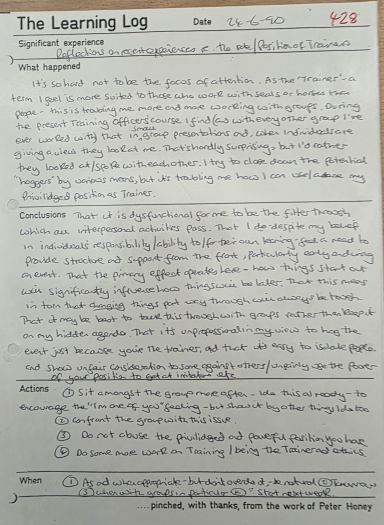 The Learning Log Date 24-6-90 428
Significant experience
Reflections on recent experiences re. the role/Position of Trainer
What happened
It's so hard not to be the focus of attention. As the "Trainer" - a
term I feel is more suited to those who work with seals or horses than
people - this is troubling me more and more working with groups. During
the present Training Officers course I find (as with every other group I've
ever worked with) that in small group presentations and, when individuals are
giving a view they look at me. That's hardly surprising - but I'd rather
they looked at/spoke with each other. I try to close down the potential
"hoggers" by various means, but it's troubling me how I can use/abuse my
priviledged position as Trainer.
Conclusions That it is dysfunctional for me to be the filter through
which all interpersonal activities pass. That I do despite my belief
in individuals responsibility/ability to/for their own learning - feel a need to
provide structure and support from the front, particularly early during
an event. That the primacy effect operates here - how things start out
will significantly influence how things will be later. That this means
in turn that changing things part way through will always be tough
That it may be best to talk this through with groups rather than keep it
on my hidden agenda That its unprofessional in my view to hog the
event just because you're the trainer, and that it's easy to isolate people
and show unfair consideration to some against others/unfairly use the power
of your position to get at irritators etc
Actions ① Sit amongst the group more often - I do this already - to
encourage the "I'm one of you" feeling - but show it by other things I do too
② Confront the group with this issue.
③ Do not abuse the priviledged and powerful position you have
④ Do some more work on Training/being the Trainer and ethics.
When ① As and when appropriate - but don't overdo it - be natural ② Tomorrow
③ when with groups in particular ④ Start next week.
.... pinched, with thanks, from the work of Peter Honey